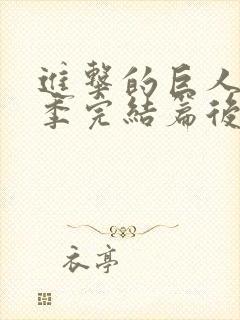 進擊的巨人
季完結篇後
衣亭